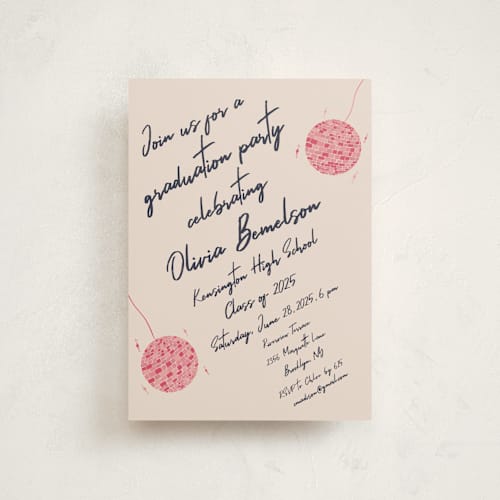 Join us for a
graduation party
celebrating
Olivia Bemelson
Kensington High School
Class of 2025
Saturday, June 28, 2025, 6 pm
Terrace
2356 Marquette Lane
Brooklyn, NJ
RSVP to Chloe by 6/5
@gmail.com